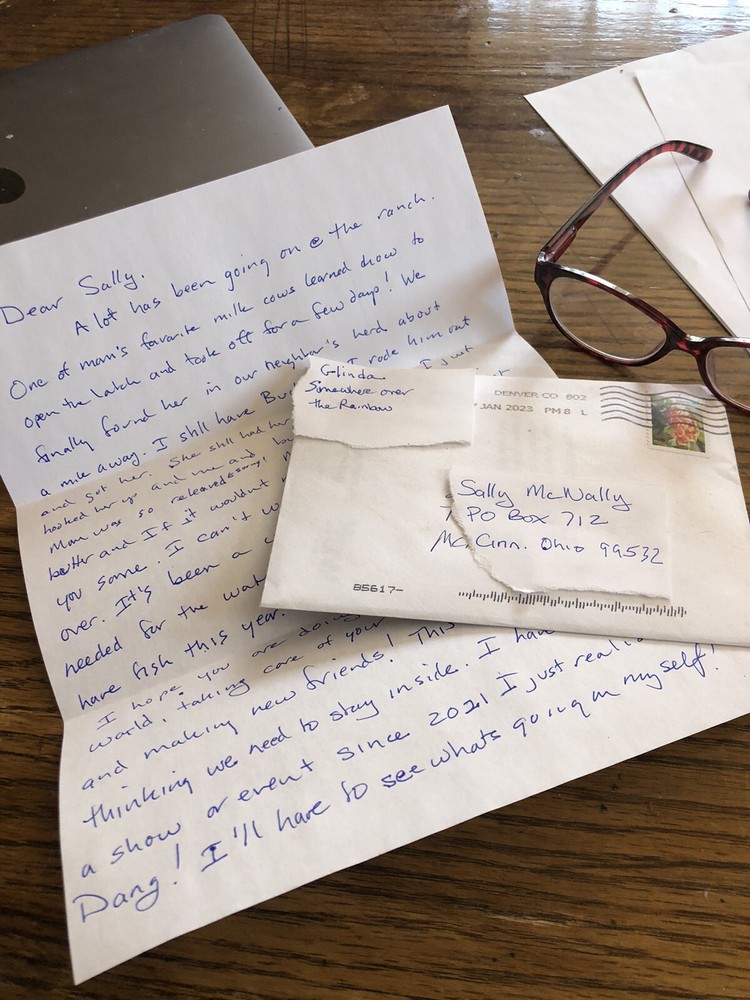 Dear Sally.
A lot has been going on @ the ranch.
One of mom's favorite milk cows learned how to
open the latch and took off for a few days! We
finally found her in our neighbor's herd about
a mile away. I still have I rode him out
and got her. She still had her I just
hooked her up and me and
Mom was so
better and If it wouldn't
you some. I can't
over. It's been a
needed for the
have fish this year.
I hope you are doing
world, taking care of your
and making new friends! This
thinking we need to stay inside. I
a show or event since 2021 I just
Dang! I'll have to see whats going on myself!
Glinda
Somewhere over
the Rainbow
DENVER CO 802
JAN 2023 PM 8 L
Sally McNally
PO Box 712
McCinn. Ohio 99532
85617-